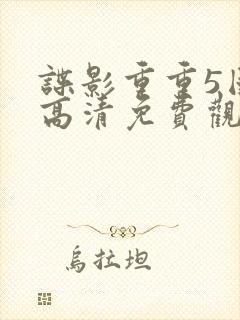 諜影重重5
高清免費觀
烏拉坦